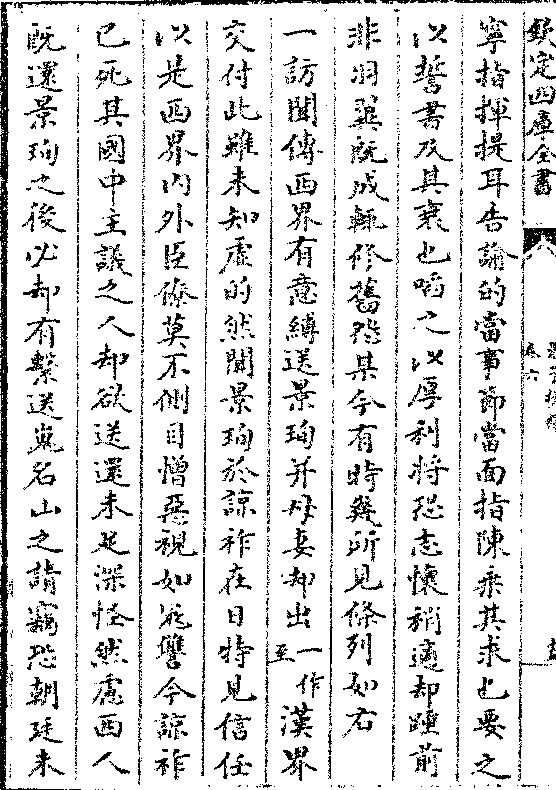 欽定四庫全書
卷六
寧指揮提耳告諭的當事節當面指陳乘其求也要之
以誓書及其衰也啗之以厚利將恐志懷稍適却踵前
非羽翼既成輒修舊怨某今有時幾所見條列如右
一訪聞傳西界有意縛送景珣并母妻却出一作至漢界
交付此雖未知虛的然聞景珣於諒祚在日特見信任
以是西界內外臣僚莫不側目憎惡視如寃讐今諒祚
已死其國中主議之人却欲送還未足深怪然慮西人
既還景珣之後必却有繫送嵬名山之請竊恐朝廷未